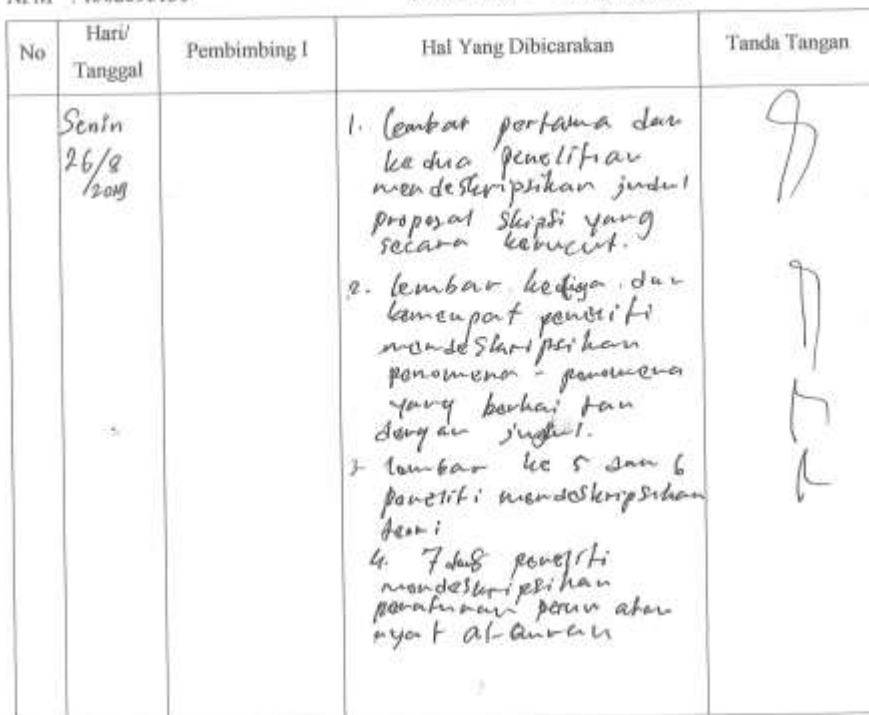 No
Hari/
Tanggal
Pembimbing I
Hal Yang Dibicarakan
Tanda Tangan
Senin
26/8
/2019
1. lembar pertama dan
kedua penelitian
mendeskripsikan judul
proposal Skipsi yang
secara kerucut.
2. lembar ketiga dan
keempat peneliti
mendeskripsikan
penomena - penomena
yang berkaitan
dengan judul.
3. lembar ke 5 dan 6
peneliti mendeskripsikan
teori
4. 7 dan 8 peneliti
mendeskripsikan
peraturan atau
ayat al-Quran